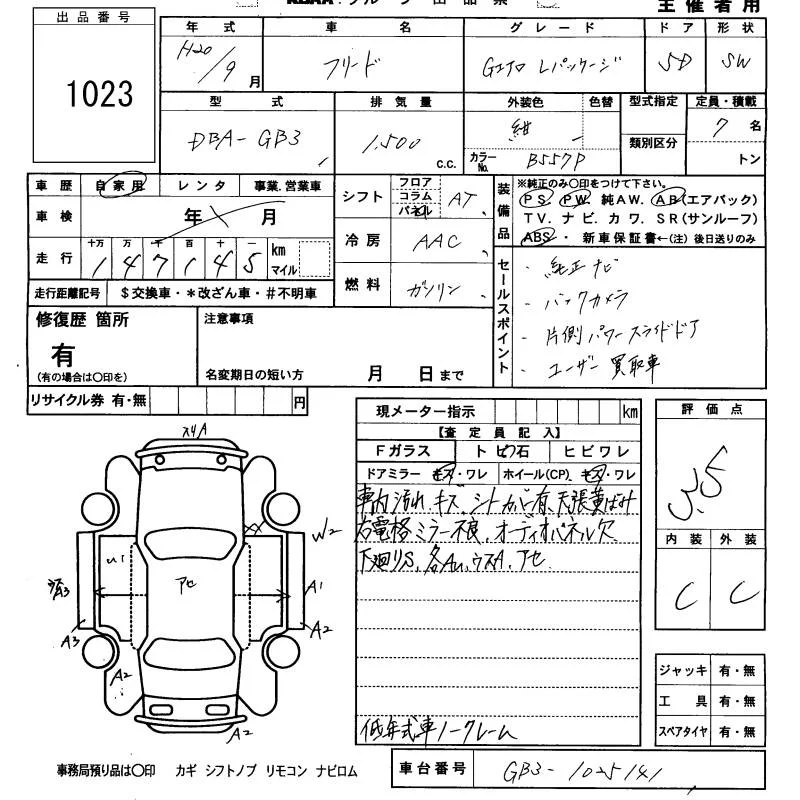 主催者用
出品番号
1023
年式 車名 グレード ドア 形状
H20/9月 フリード Gエアロ Lパッケージ 5D SW
型式 排気量 外装色 色替 型式指定 定員・積載
DBA-GB3 1,500 c.c. 紺 類別区分 7名
カラーNo. B557P トン
車歴 自家用 レンタ 事業,営業車
シフト フロア コラム パネル AT
装備品 ※純正のみ〇印をつけて下さい。
PS. PW. 純AW. AB(エアバック)
TV. ナビ. カワ. SR(サンルーフ)
ABS・ 新車保証書←(注)後日送りのみ
車検 年 月
冷房 AAC
走行 十万 万 千 百 十 一 km マイル
147145
燃料 ガソリン
走行距離記号 $交換車・*改ざん車・#不明車
セールスポイント
・純正ナビ
・バックカメラ
・片側パワースライドドア
・ユーザー買取車
修復歴 箇所
有
(有の場合は〇印を)
注意事項
名変期日の短い方 月 日まで
リサイクル券 有・無 円
現メーター指示 km
【査定員記入】
Fガラス トビ石 ヒビワレ
ドアミラー キズ・ワレ ホイール(CP). キズ・ワレ
車内汚れ.キズ.シートカバー有.天張黄ばみ
右電格ミラー不良.オーディオパネル欠
下廻りS.各AU.ウスA.アセ
低年式車ノークレーム
評価点
3.5
内装 外装
C C
スリA
W2
U1
アセ
A3
A1
A3
A2
A2
A2
ジャッキ 有・無
工具 有・無
スペアタイヤ 有・無
事務局預り品は〇印 カギ シフトノブ リモコン ナビロム
車台番号 GB3-1025141